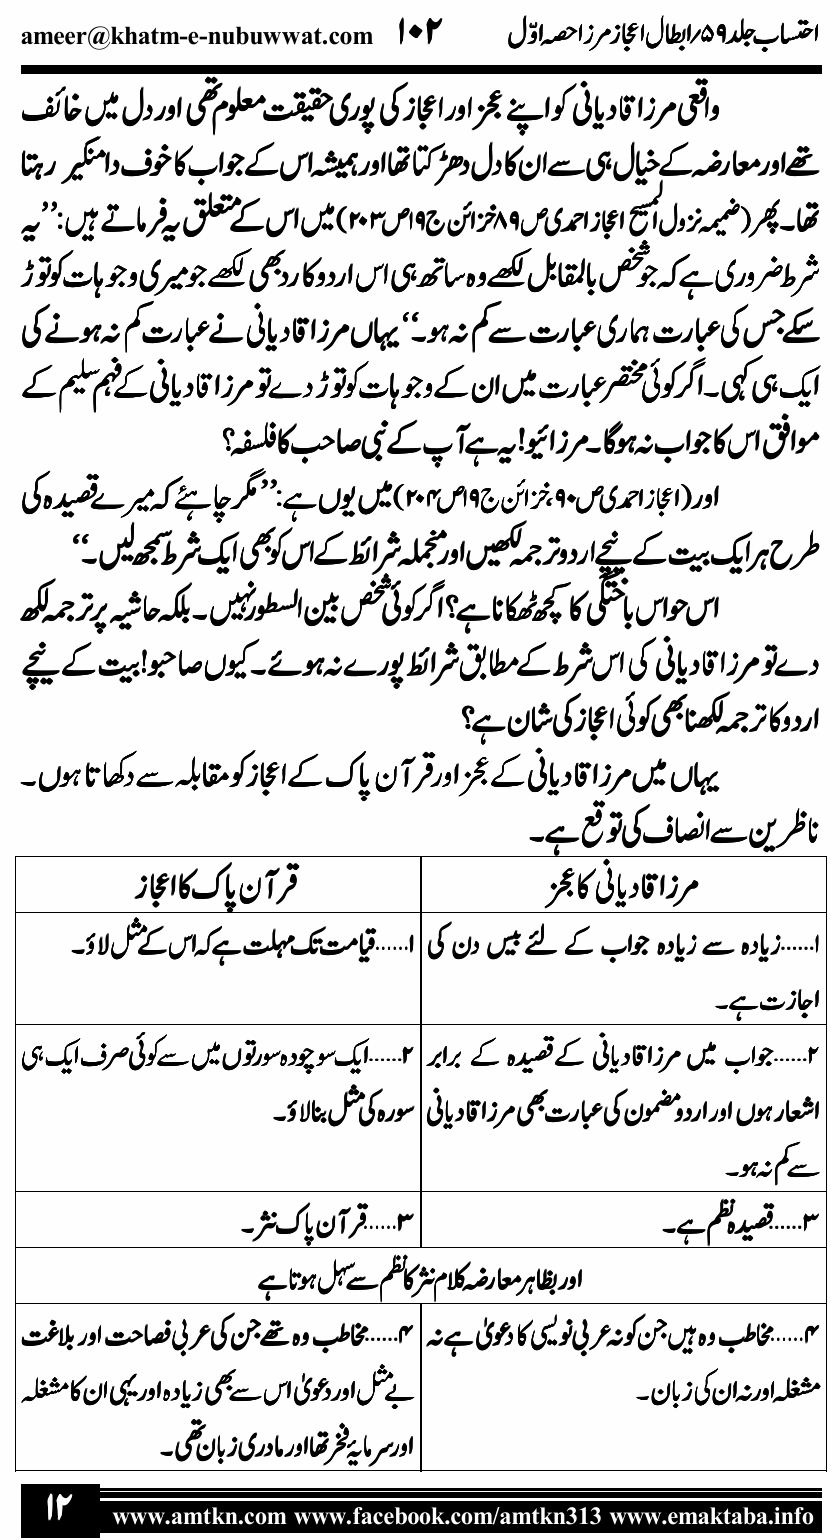 احتساب جلد ۵۹/ابطال اعجاز مرزا حصہ اوّل ۱۰۲ ameer@khatm-e-nubuwwat.com
واقعی مرزا قادیانی کو اپنے عجز اور اعجاز کی پوری حقیقت معلوم تھی اور دل میں خائف
تھے اور معارضہ کے خیال ہی سے ان کا دل دھڑکتا تھا اور ہمیشہ اس کے جواب کا خوف دامنگیر رہتا
تھا۔ پھر (ضمیمہ نزول المسیح اعجاز احمدی ص۸۹ خزائن ج۱۹ ص۲۰۳) میں اس کے متعلق یہ فرماتے ہیں: ’’یہ
شرط ضروری ہے کہ جو شخص بالمقابل لکھے وہ ساتھ ہی اس اردو کا رد بھی لکھے جو میری وجوہات کو توڑ
سکے جس کی عبارت ہماری عبارت سے کم نہ ہو۔‘‘ یہاں مرزا قادیانی نے عبارت کم نہ ہونے کی
ایک ہی کہی۔ اگر کوئی مختصر عبارت میں ان کے وجوہات کو توڑ دے تو مرزا قادیانی کے فہم سلیم کے
موافق اس کا جواب نہ ہوگا۔ مرزائیو! یہ ہے آپ کے نبی صاحب کا فلسفہ؟
اور (اعجاز احمدی ص۹۰، خزائن ج۱۹ ص۲۰۴) میں یوں ہے: ’’مگر چاہئے کہ میرے قصیدہ کی
طرح ہر ایک بیت کے نیچے اردو ترجمہ لکھیں اور منجملہ شرائط کے اس کو بھی ایک شرط سمجھ لیں۔‘‘
اس حواس باختگی کا کچھ ٹھکانا ہے؟ اگر کوئی شخص بین السطور نہیں۔ بلکہ حاشیہ پر ترجمہ لکھ
دے تو مرزا قادیانی کی اس شرط کے مطابق شرائط پورے نہ ہوئے۔ کیوں صاحبو! بیت کے نیچے
اردو کا ترجمہ لکھنا بھی کوئی اعجاز کی شان ہے؟
یہاں میں مرزا قادیانی کے عجز اور قرآن پاک کے اعجاز کو مقابلہ سے دکھاتا ہوں۔
ناظرین سے انصاف کی توقع ہے۔
مرزا قادیانی کا عجز
قرآن پاک کا اعجاز
۱......زیادہ سے زیادہ جواب کے لئے بیس دن کی
اجازت ہے۔
۱......قیامت تک مہلت ہے کہ اس کے مثل لاؤ۔
۲......جواب میں مرزا قادیانی کے قصیدہ کے برابر
اشعار ہوں اور اردو مضمون کی عبارت بھی مرزا قادیانی
سے کم نہ ہو۔
۲......ایک سو چودہ سورتوں میں سے کوئی صرف ایک ہی
سورہ کی مثل بنا لاؤ۔
۳......قصیدہ نظم ہے۔
۳......قرآن پاک نثر۔
اور بظاہر معارضہ کلام نثر کا نظم سے سہل ہوتا ہے
۴......مخاطب وہ ہیں جن کو نہ عربی نویسی کا دعویٰ ہے نہ
مشغلہ اور نہ ان کی زبان۔
۴......مخاطب وہ تھے جن کی عربی فصاحت اور بلاغت
بے مثل اور دعویٰ اس سے بھی زیادہ اور یہی ان کا مشغلہ
اور سرمایۂ فخر تھا اور مادری زبان تھی۔
۱۲ www.amtkn.com www.facebook.com/amtkn313 www.emaktaba.info